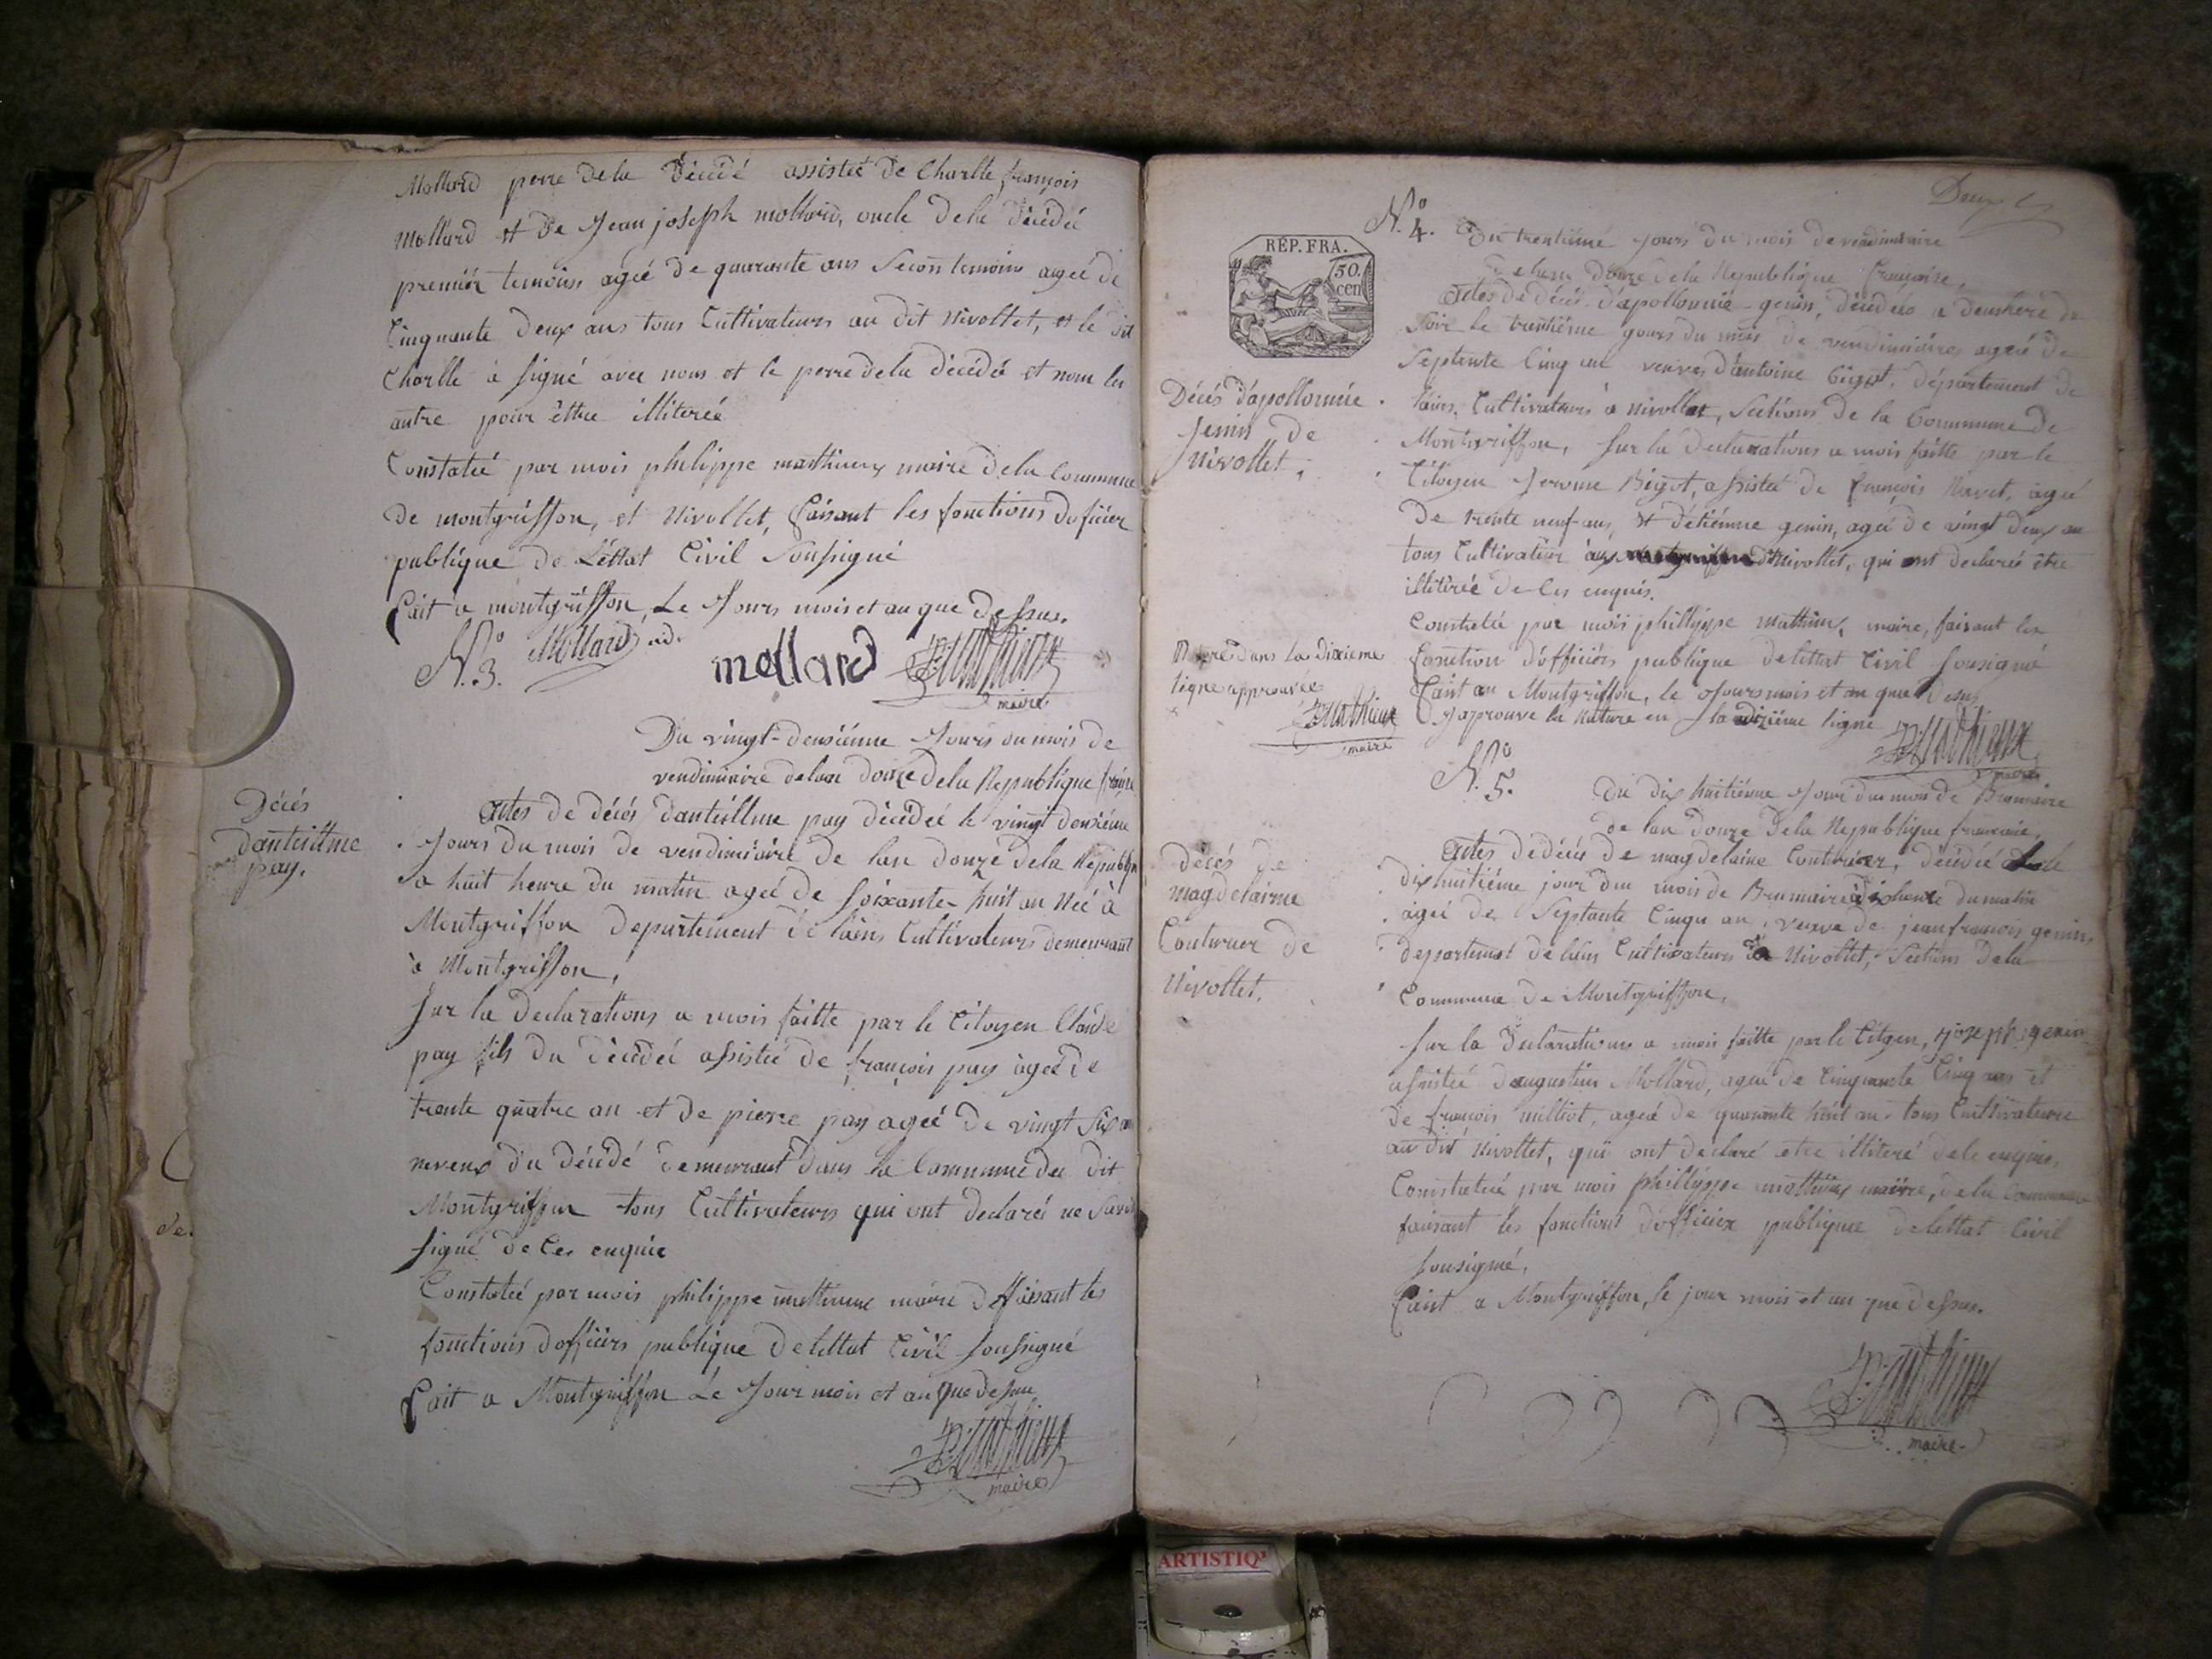 Mollard perre dela décédé assistée de Charlle françois
Mollard et de Jean joseph mollard, oncle dela décédée
premiér temoins ageé de quarante ans Secon temoins ageé de
Cinquante deux ans tous Cultivateurs au dit Nivollet, et le dit
Charlle à signé avec nous et le perre dela décédée et nom les
autre pour éttre illiterée
Constateé par mois philippe mathieux maire dela Commune
de montgriffon, et Nivollet, faisant les fonctions doficier
publique de L'éttat Civil Soussigné
fait a montgriffon, Le Jours mois et an que dessus.
Mollard ad.
mollard
P: Mathieux
maire
N.º 3.
Du vingt-deusiéme Jours du mois de
vendimiaire delan douze dela Republique
Décés
dantéillme
pay.
Actes de décés dantéillme pay décédeé le vingt deusiéme
Jours du mois de vendimiaire de lan douze dela
a huit heure du matin ageé de soixante-huit an Neé à
Montgriffon departement de lains Cultivateurs demeurant
à Montgriffon,
Sur la declarations a mois faitte par le Citoyen Claude
pay fils du décédeé assisteé de françois pay ageé de
trente quatre an et de pierre pay ageé de vingt six an
neveux du décédé demeurant dans la Commune du dit
Montgriffon tous Cultivateurs qui ont declaré ne Savoir
signé de Ces enquie
Constateé par mois philippe mathieux maire faisant les
fonctions dofficiérs publique delettat Civil soussigné
fait a Montgriffon Le Jour mois et an que dessu
P: Mathieux
maire
RÉP. FRA.
50.
cen
N.º 4. Du trentiéme Jours du mois de vendimiaire
delan douze dela Republique francaise,
Décés d'apollonnie
Jenin de
Nivollet,
Actes de décés d'apollonnie genin, décédeé a
soir le trentiéme jours du mois de vendimiaire ageé de
Septente Cinq an veuve d'antoine Bigot, département de
lains, Cultivateurs a Nivollet, Sections de la Commune de
Montgriffon, sur la declarations a mois faitte par le
Citoyen Jerome Bigot, assisteé de françois Ravet, ageé
de trente neuf ans, et d'étiénne genin, ageé de vingt deux an
tous Cultivateur Nivollet, qui ont declarés être
illitérée de Ces enquis.
Constateé par mois phillippe mathieux, maire, faisant les
fonction d'officiérs publique delettat Civil sousigné
fait au Montgriffon, le Jours mois et an que desus
J'aprouve la Rature en la diziéme ligne
P: Mathieux
maire
Rature dans la dixieme
ligne approuvée
P: Mathieux
maire
N.º 5. du dix huitiéme Jour du mois de Brumaire
de lan douze dela Republique francaise,
Décés de
magdelainne
Couturier de
Nivollet.
Actes dedécés de magdelaine Couturier, décédeé le
dixhuitiéme jour du mois de Brumaire à heure du matin
ageé de Septante Cinqu an, veuve de jean françois genin,
departement de lains Cultivateurs a Nivollet, Sections dela
Commune de Montgriffon,
Sur la declarations a mois faitte par le Citoyen, Jozeph genin
assisteé d'augustin Mollard, ageé de Cinquante Cinq ans et
de françois milliot, ageé de quarante huit an. tous Cultivateurs
au dit Nivollet, qui ont declaré etre illiteré de enquis.
Constateé par mois phillippe mathieux maire, dela Commune
faisant les fonctions d'officiér publique delettat Civil
sousigné,
fait a Montgriffon, le jour mois et an que dessus.
P: Mathieux
maire
ARTISTIQ